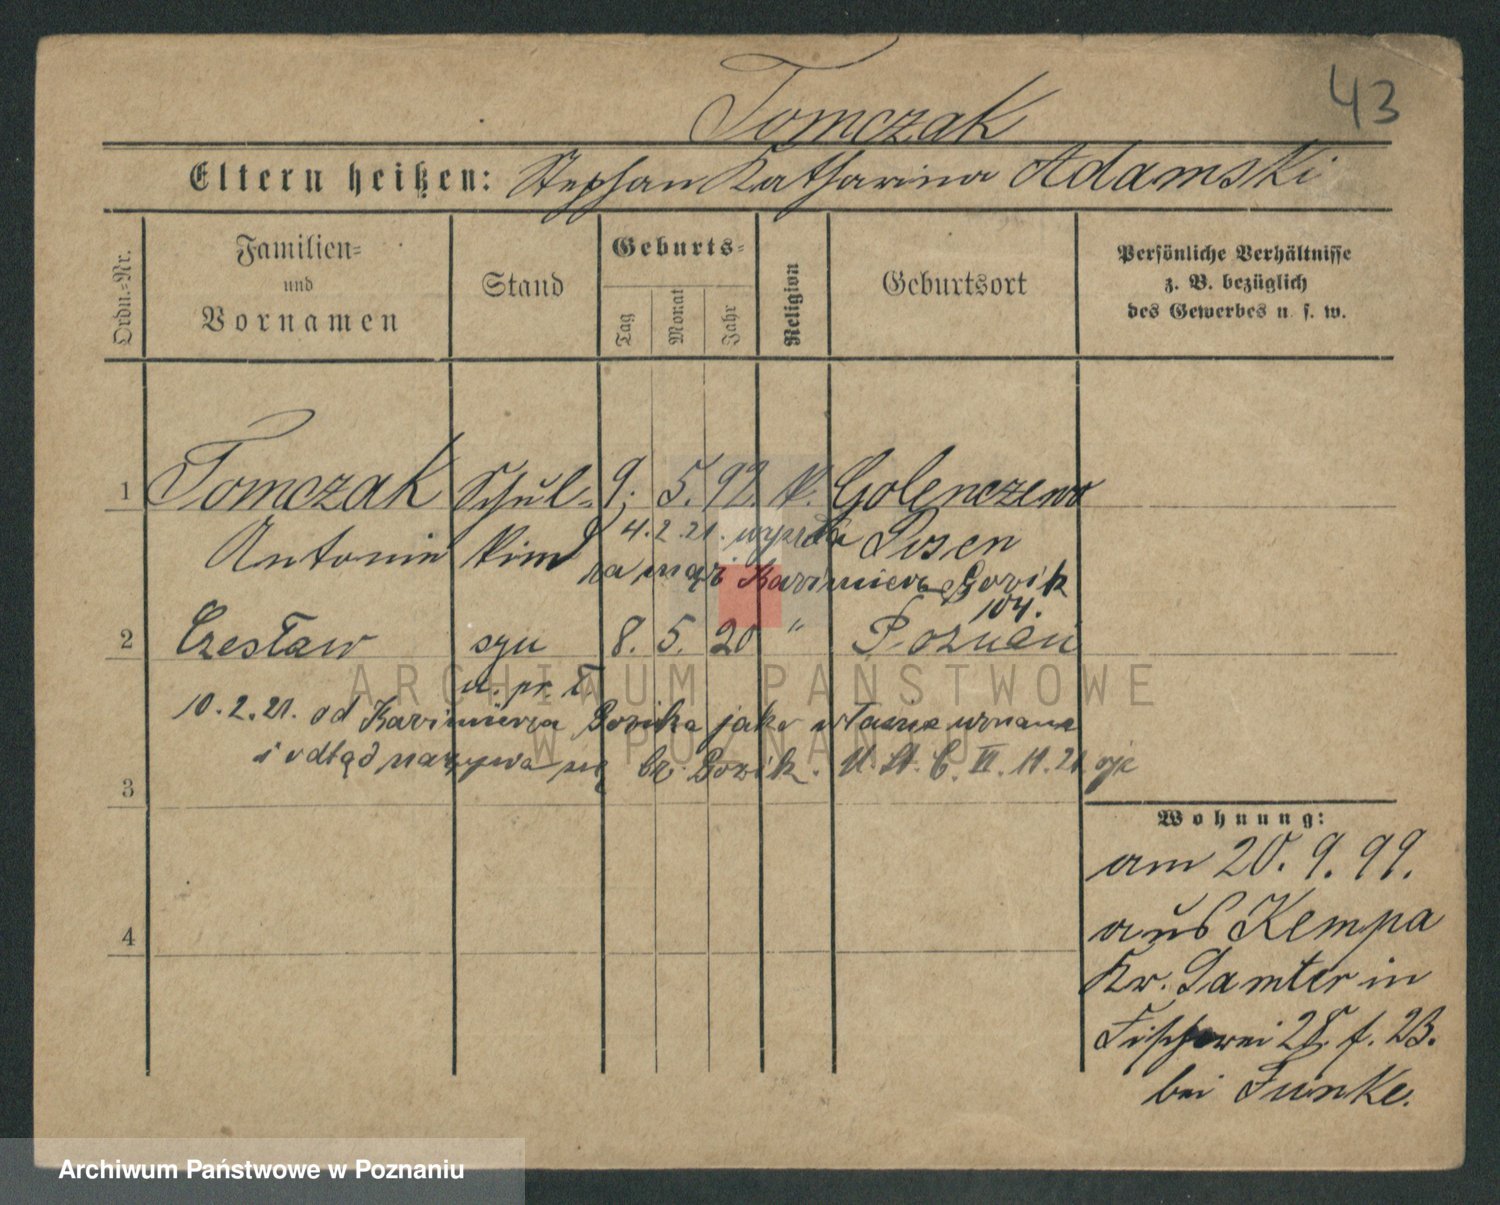 43
Tomczak
Eltern heißen: Stephan Katharina Adamski
Ordn.-Nr.
Familien-
und
Vornamen
Stand
Geburts-
Tag
Monat
Jahr
Religion
Geburtsort
Persönliche Verhältnisse
z. B. bezüglich
des Gewerbes u. s. w.
1 Tomczak Schul- 9. 5. 92. k. Golenczewo
Antonie kind 4.2.21. wyszła Posen
za mąż Kazimierz Gozik
104.
2 Czesław syn 8. 5. 20 " Poznań
u. pr. T.
10.2.21. od Kazimierza Gozika jako własne uznane
i odtąd nazywa się Gozik. U. St. C. VI. 11.21
3
4
Wohnung:
am 20. 9. 99.
aus Kempa
Kr. Samter in
Fischerei 28. f. 23.
bei Funke.
ARCHIWUM PAŃSTWOWE
W POZNANIU
Archiwum Państwowe w Poznaniu